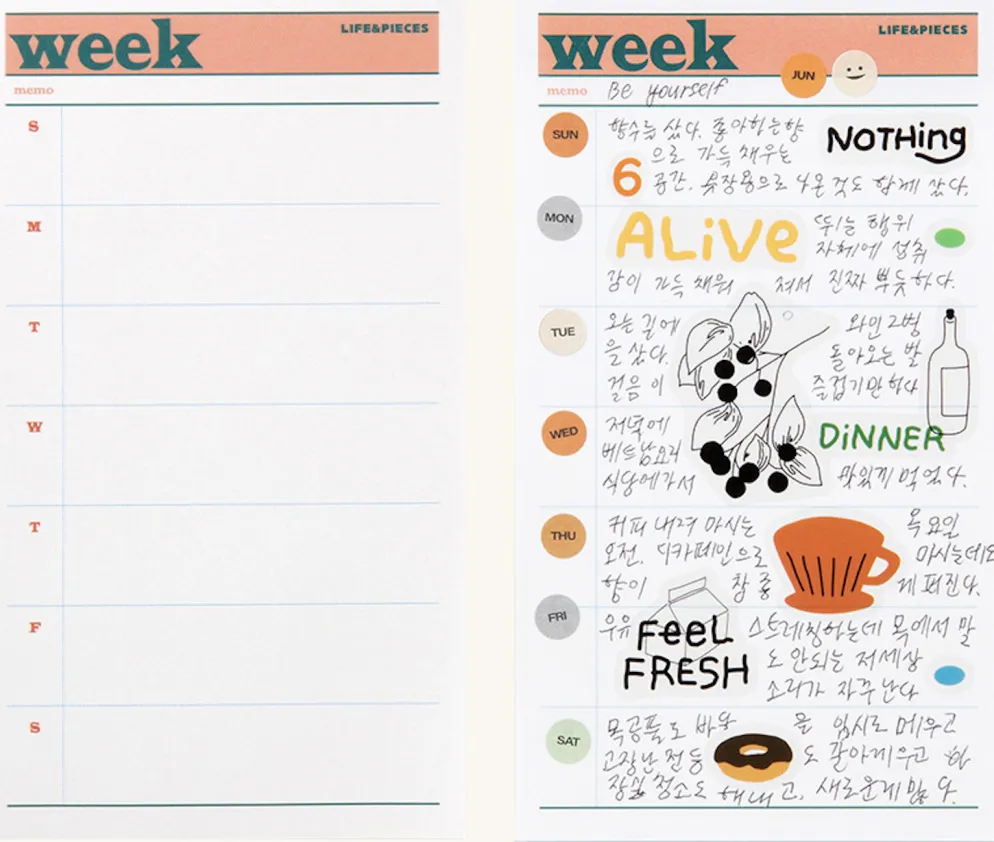 week
LIFE&PIECES
memo
S
M
T
W
T
F
S
week
LIFE&PIECES
JUN
memo
Be yourself
SUN
향수를 샀다. 좋아하는 향
NOTHing
으로 가득 채우는
6
공간. 옷장용으로 나온 것도 함께 샀다.
MON
ALiVe
뛰는 행위
자체에 성취
감이 가득 채워 져서 진짜 뿌듯하다.
TUE
오는 길에
와인 2병
을 샀다.
돌아오는 발
걸음 이
즐겁기만 하다
WED
저녁에
DiNNER
베트남요리
식당에가서
맛있게 먹었다.
THU
커피 내려 마시는
목요일
오전. 디카페인으로
마시는데도
향이 참 좋
게 퍼진다.
FRI
우유
FeeL
스트레칭하는데 목에서 말
FRESH
도 안되는 저세상
소리가 자꾸 난다
SAT
목공풀로
을 임시로 메우고
고장난 전등
도 갈아끼우고 화
장실 청소도 해내고,